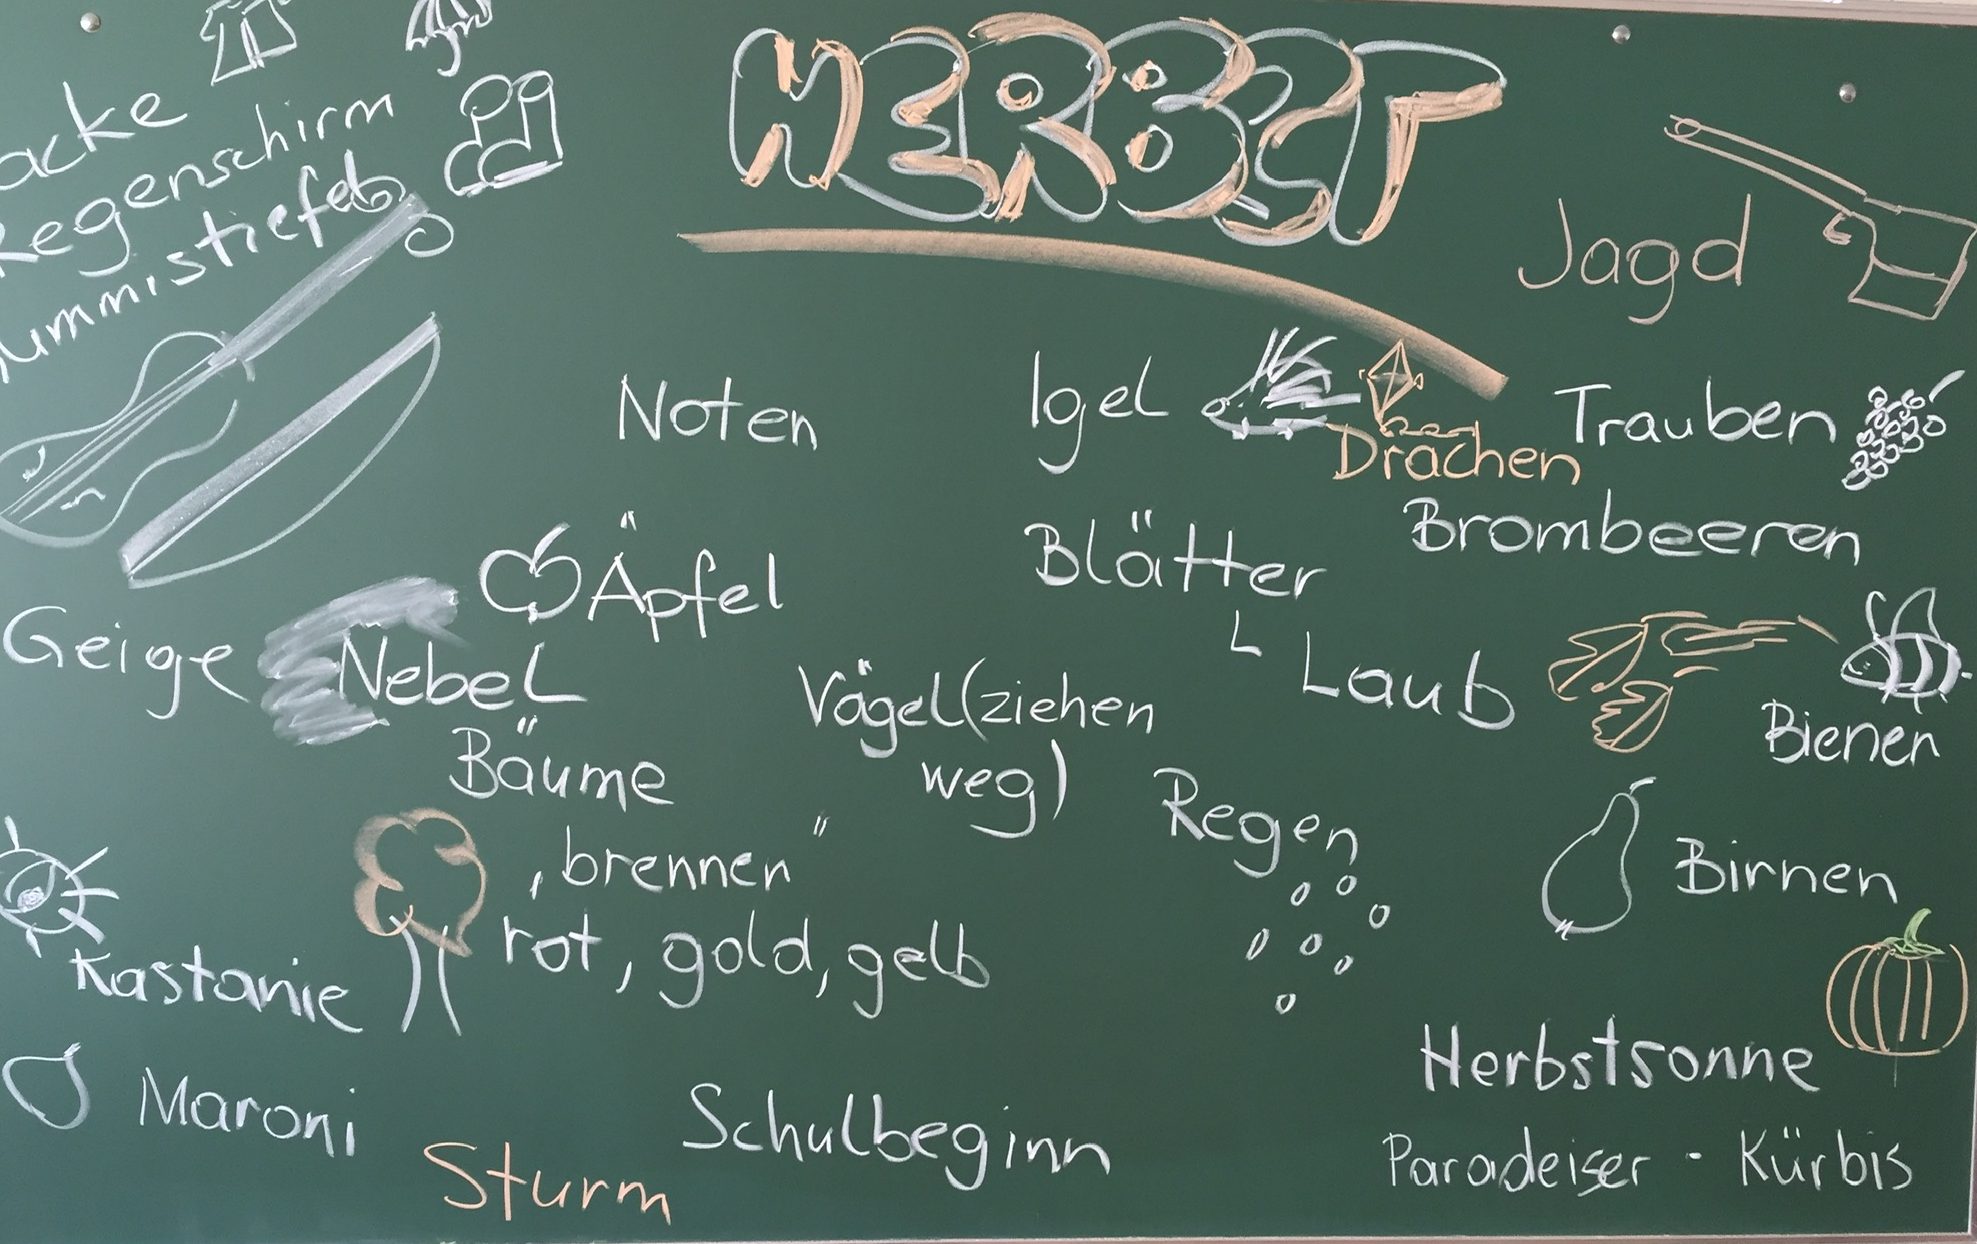 HERBST
acke
Regenschirm
ummistiefel
Jagd
Noten
Igel
Drachen
Trauben
Brombeeren
Äpfel
Blätter
Laub
Geige
Nebel
Bäume
Vögel (ziehen
weg)
Bienen
Regen
„brennen"
Birnen
rot, gold, gelb
Kastanie
Herbstsonne
Maroni
Schulbeginn
Sturm
Paradeiser · Kürbis